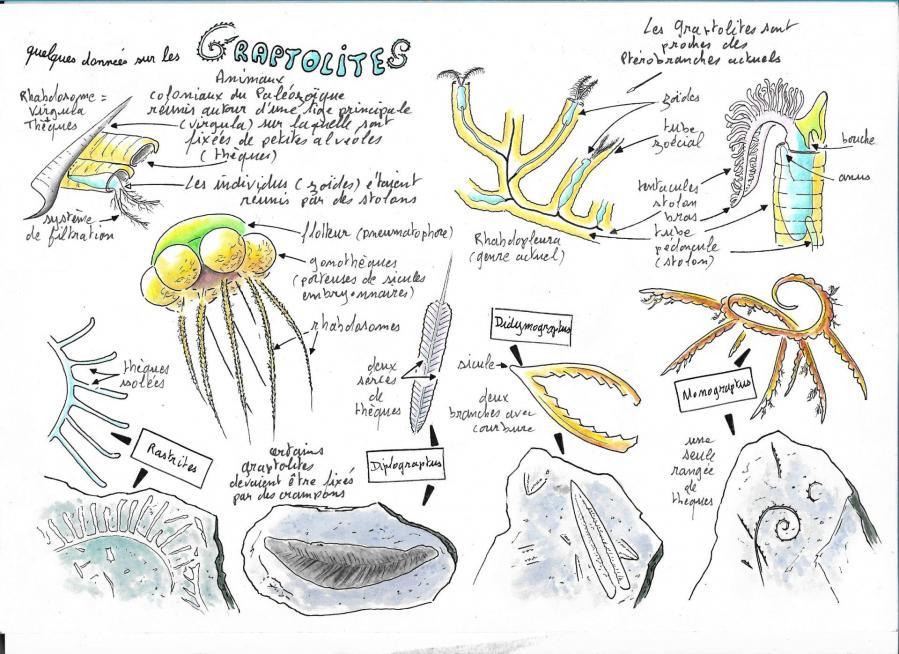 quelques données sur les GRAPTOLITES
Les Graptolites sont
proches des
Ptérobranches actuels
Rhabdosome =
virgula
Thèques
Animaux
coloniaux du Paléozoïque
réunis autour d'une tige principale
(virgula) sur laquelle sont
fixées de petites alvéoles
(thèques)
Les individus (zoïdes) étaient
réunis par des stolons
système
de filtration
zoïdes
tube
zoécial
tentacules
stolon
bras
tube
pédoncule
(stolon)
bouche
anus
Rhabdopleura
(genre actuel)
flotteur (pneumatophore)
gonothèques
(porteuses de sicules
embryonnaires)
rhabdosomes
thèques
isolées
Rastrites
certains
graptolites
devaient être fixés
par des crampons
deux
séries
de
thèques
Diplograptus
Didymograptus
sicule
deux
branches avec
courbure
Monograptus
une
seule
rangée
de
thèques